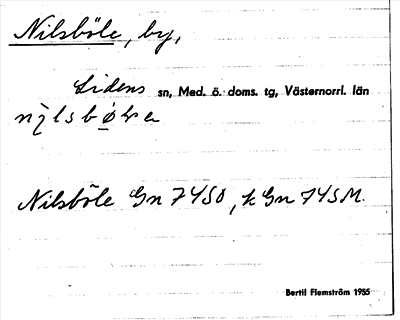 Nilsböle, by,
Lidens sn, Med. ö. doms. tg, Västernorrl. län
Nilsböle Gn 7450, k Gn 745 M.
Bertil Flemström 1955